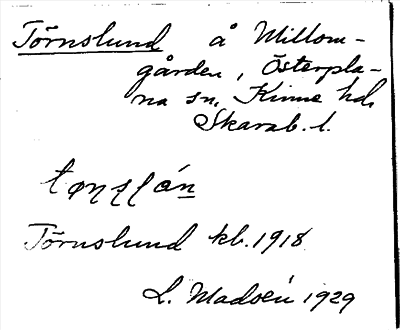 Törnslund å Mellom-
gården, Österpla-
na sn, Kinne hd,
Skarab. l.
Törnslund kb. 1918
L. Madsén 1929